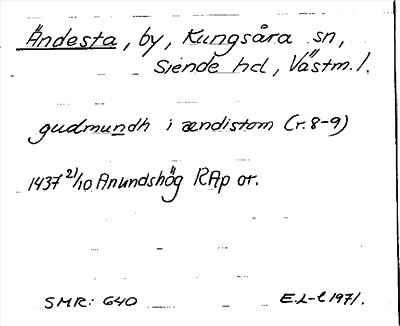 Ändesta, by, Kungsåra sn,
Siende hd, Västm. l.
gudmundh i ændistom (r. 8-9)
1437 21/10 Anundshög RAp or.
SMR: 640 E.L-l 1971.